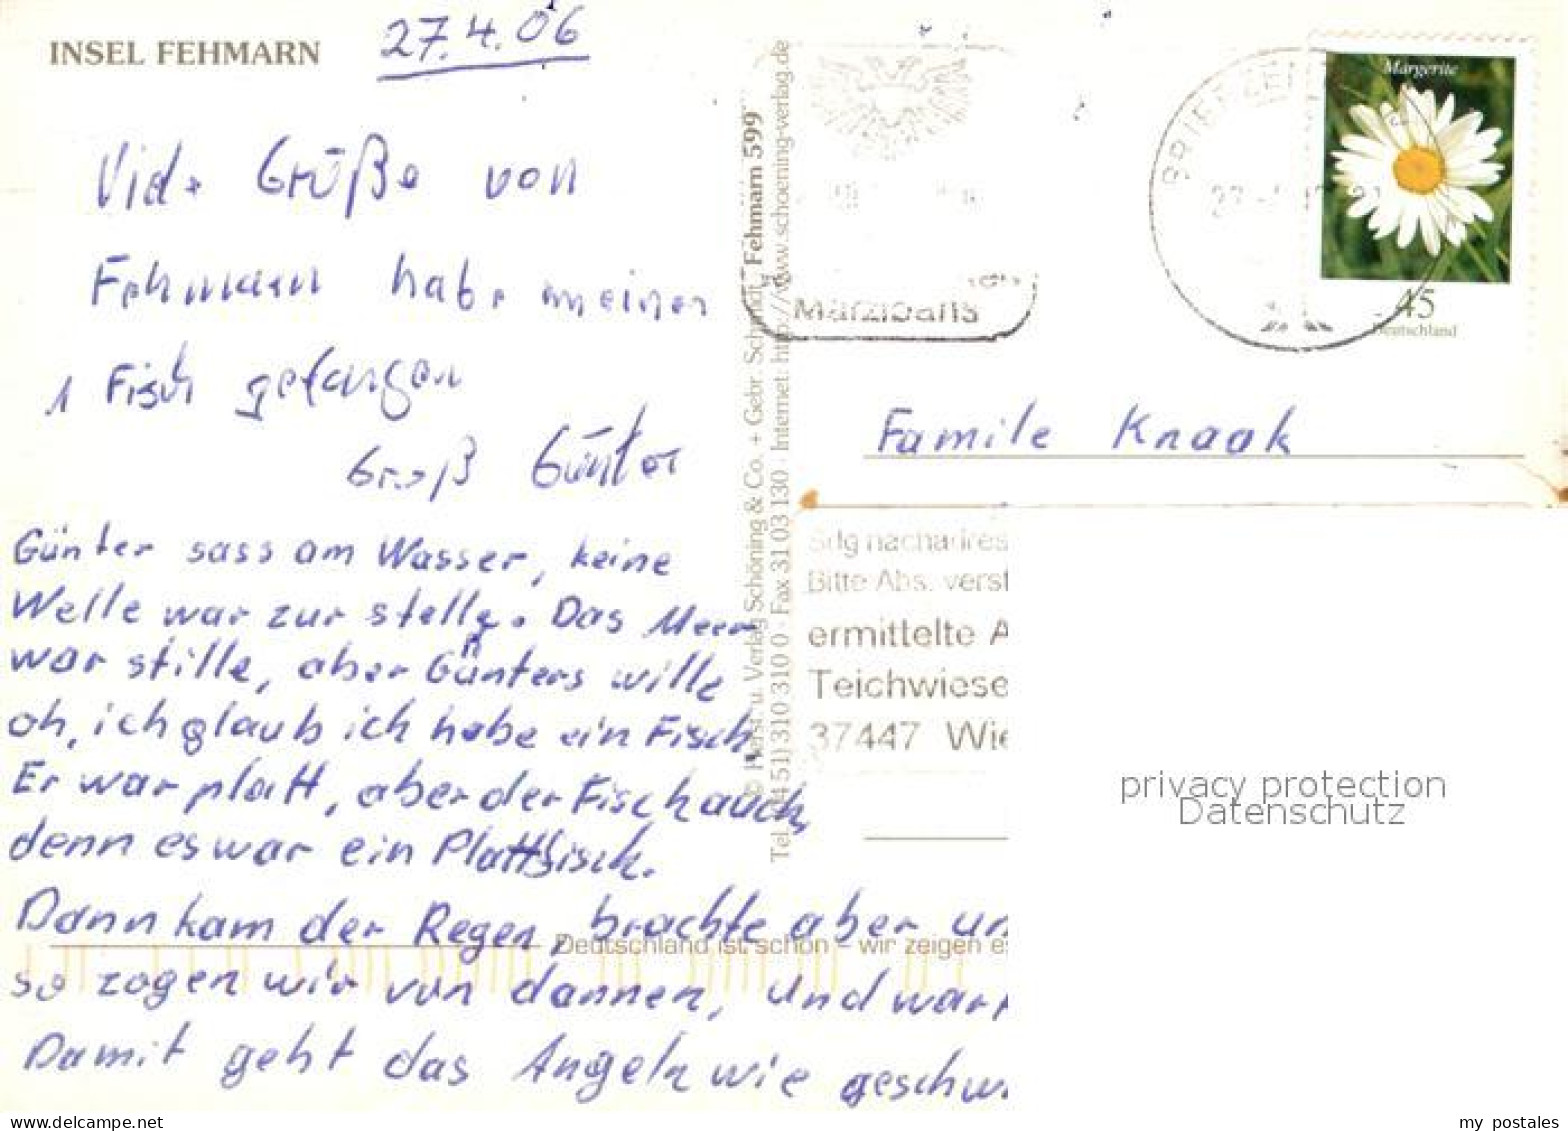 INSEL FEHMARN
27.4.06
Viele Grüße von
Fehmarn habe meinen
1 Fisch gefangen
Gruß Günter
Günter sass am Wasser, keine
Welle war zur stelle. Das Meer
war stille, aber Günters wille
oh, ich glaub ich habe ein Fisch
Er war platt, aber der Fisch auch,
denn es war ein Plattfisch.
Dann kam der Regen, brachte aber un
so zogen wir von dannen, und war
Damit geht das Angeln wie geschw
© Herst. u. Verlag Schöning & Co. + Gebr. Schmidt Fehmarn 599
Tel. (04 51) 310 310 0 · Fax 31 03 130 · Internet: http://www.schoening-verlag.de
Deutschland ist schön - wir zeigen es
Marzipans
BRIEFZEN
Margerite
45
Deutschland
Famile Knaak
Sdg nachadres
Bitte Abs. verst
ermittelte A
Teichwiese
37447 Wie
privacy protection
Datenschutz
www.delcampe.net
my_postales